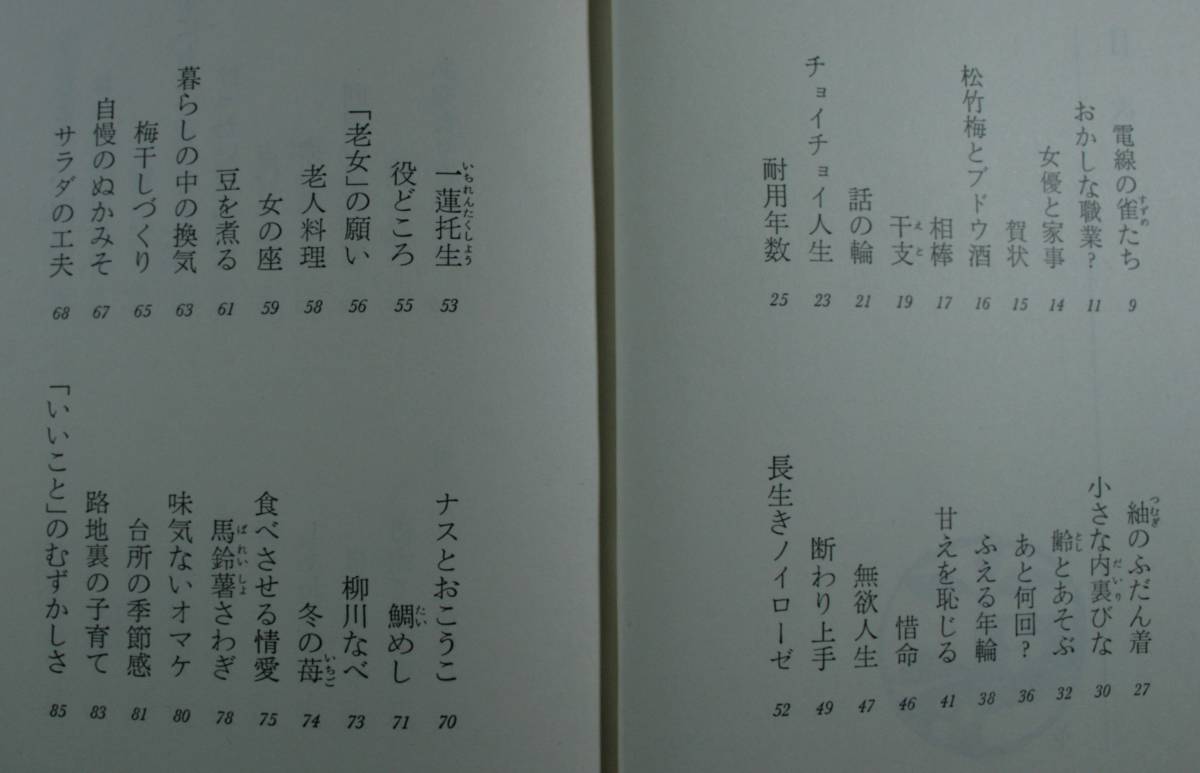 電線の雀たち 9
おかしな職業? 11
女優と家事 14
賀状 15
松竹梅とブドウ酒 16
相棒 17
干支 19
話の輪 21
チョイチョイ人生 23
耐用年数 25
紬のふだん着 27
小さな内裏びな 30
齢とあそぶ 32
あと何回? 36
ふえる年輪 38
甘えを恥じる 41
惜命 46
無欲人生 47
断わり上手 49
長生きノイローゼ 52
一蓮托生 53
役どころ 55
「老女」の願い 56
老人料理 58
女の座 59
豆を煮る 61
暮らしの中の換気 63
梅干しづくり 65
自慢のぬかみそ 67
サラダの工夫 68
ナスとおこうこ 70
鯛めし 71
柳川なべ 73
冬の苺 74
食べさせる情愛 75
馬鈴薯さわぎ 78
味気ないオマケ 80
台所の季節感 81
路地裏の子育て 83
「いいこと」のむずかしさ 85